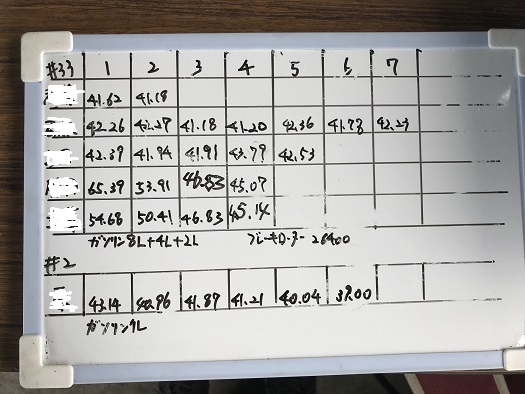 #33 1 2 3 4 5 6 7
41.62 41.18
42.26 42.27 41.18 41.20 42.36 41.78 42.23
42.39 41.94 41.91 43.79 42.53
65.39 53.91 46.53 45.07
54.68 50.41 46.83 45.14
ガソリン 8L+4L+2L ブレーキローター 26400
#2
43.14 40.96 41.87 41.21 40.04 39.00
ガソリン